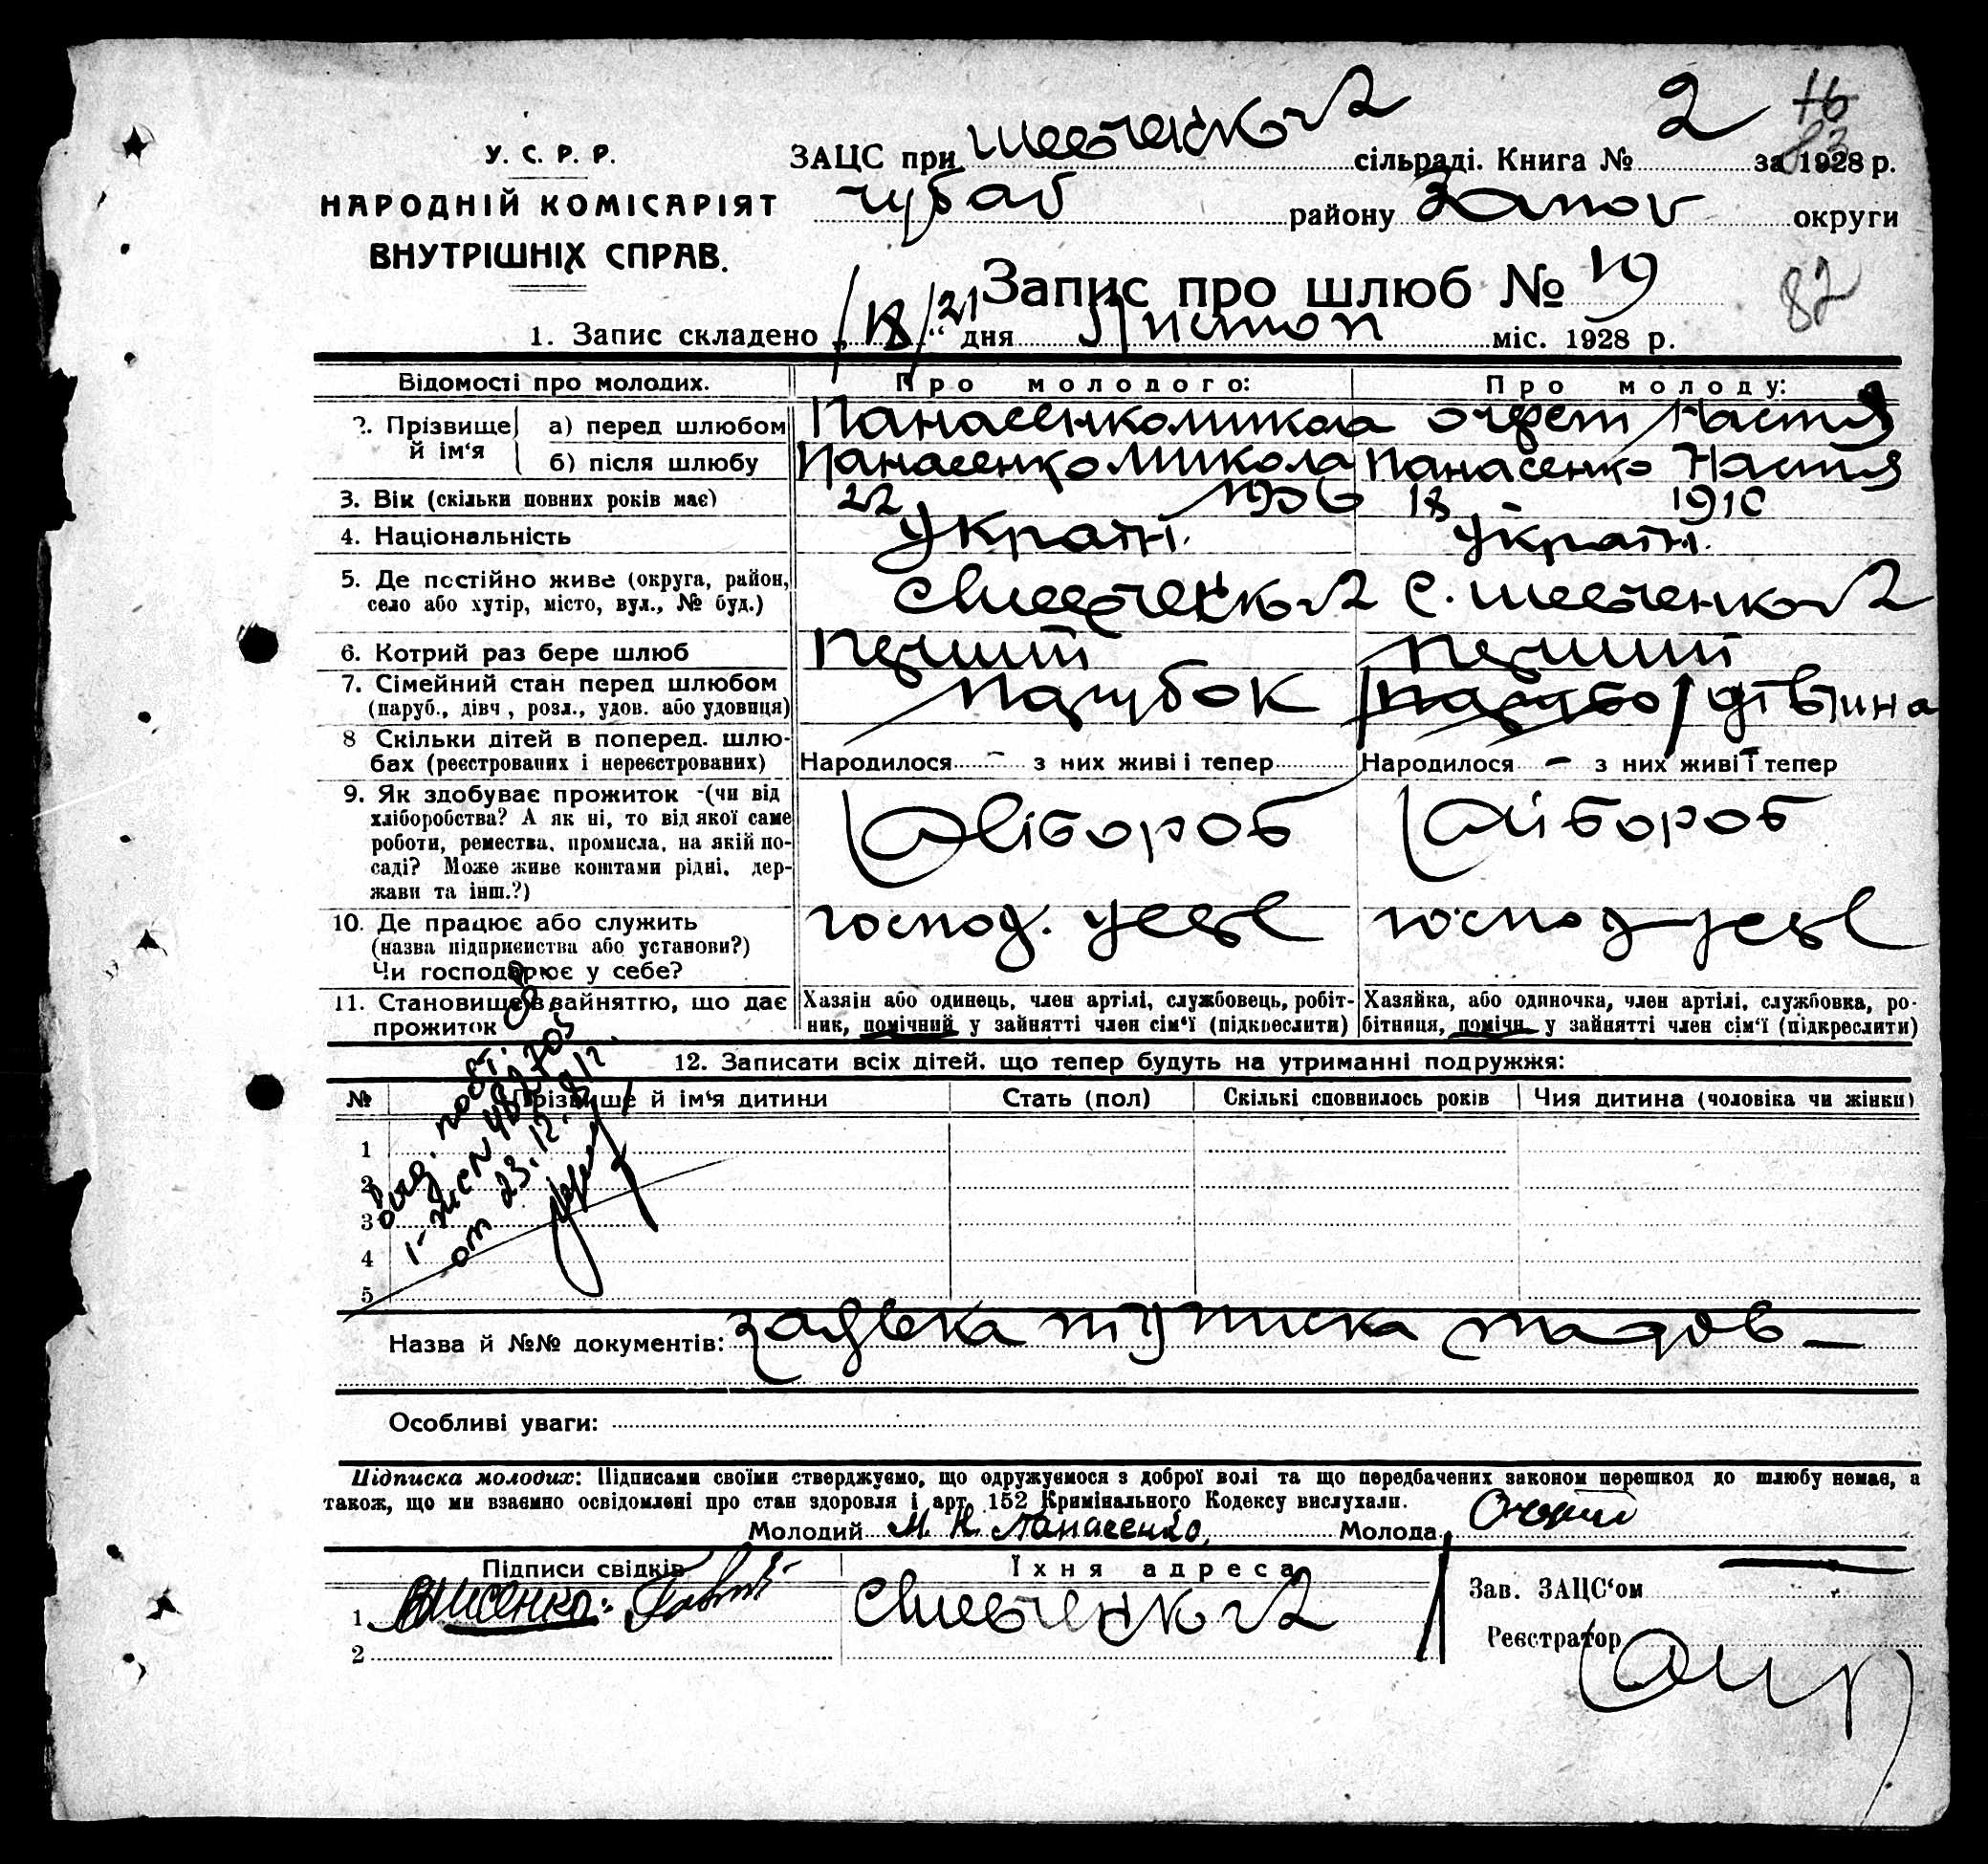 У. С. Р. Р.
НАРОДНІЙ КОМІСАРІЯТ
ВНУТРІШНІХ СПРАВ.
ЗАЦС при Шевченков 2 сільраді. Книга № 2 за 1928 р.
Чубав району Запор округи
Запис про шлюб № 19
82
1. Запис складено „18/21“ дня Листоп міс. 1928 р.
Відомості про молодих. Про молодого: Про молоду:
2. Прізвище й ім‘я
а) перед шлюбом Панасенко Микола Очерет Настя
б) після шлюбу Панасенко Микола Панасенко Настя
3. Вік (скільки повних років має) 22 1906 18 1910
4. Національність Україн. Україн.
5. Де постійно живе (округа, район, село або хутір, місто, вул., № буд.) С Шевченков 2 С. Шевченков 2
6. Котрий раз бере шлюб Перший Перший
7. Сімейний стан перед шлюбом (паруб., дівч., розл., удов. або удовиця) Парубок дівчина
8 Скільки дітей в поперед. шлюбах (реєстрованих і нереєстрованих) Народилося — з них живі і тепер Народилося — з них живі і тепер
9. Як здобуває прожиток -(чи від хліборобства? А як ні, то від якої саме роботи, ремества, промисла, на якій посаді? Може живе коштами рідні, держави та інш.?) Хлібороб Хлібороб
10. Де працює або служить (назва підприємства або установи?) Чи господарює у себе? господ. у себе господ у себе
11. Становище в зайняттю, що дає прожиток
Хазяїн або одинець, член артілі, службовець, робітник, помічний у зайнятті член сім‘ї (підкреслити)
Хазяйка, або одиночка, член артілі, службовка, робітниця, помічн. у зайнятті член сім‘ї (підкреслити)
12. Записати всіх дітей, що тепер будуть на утриманні подружжя:
№ Прізвище й ім‘я дитини Стать (пол) Скількі сповнилось років Чия дитина (чоловіка чи жінки)
1
2
3
4
5
от 23.12.
Назва й №№ документів: заявка
Особливі уваги:
Підписка молодих: Підписами своїми стверджуємо, що одружуємося з доброї волі та що передбачених законом перешкод до шлюбу немає, а
також, що ми взаємно освідомлені про стан здоровля і арт. 152 Кримінального Кодексу вислухали.
Молодий М. Н. Панасенко, Молода Очерет
Підписи свідків Їхня адреса
1. С Шевченков 2
2
Зав. ЗАЦС‘ом
Реєстратор